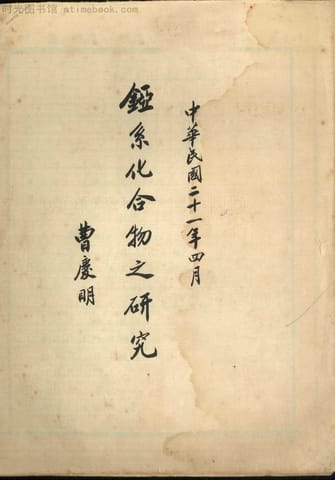 时光图书馆 atimebook.com
中華民國二十一年四月
錏系化合物之研究
曹慶明